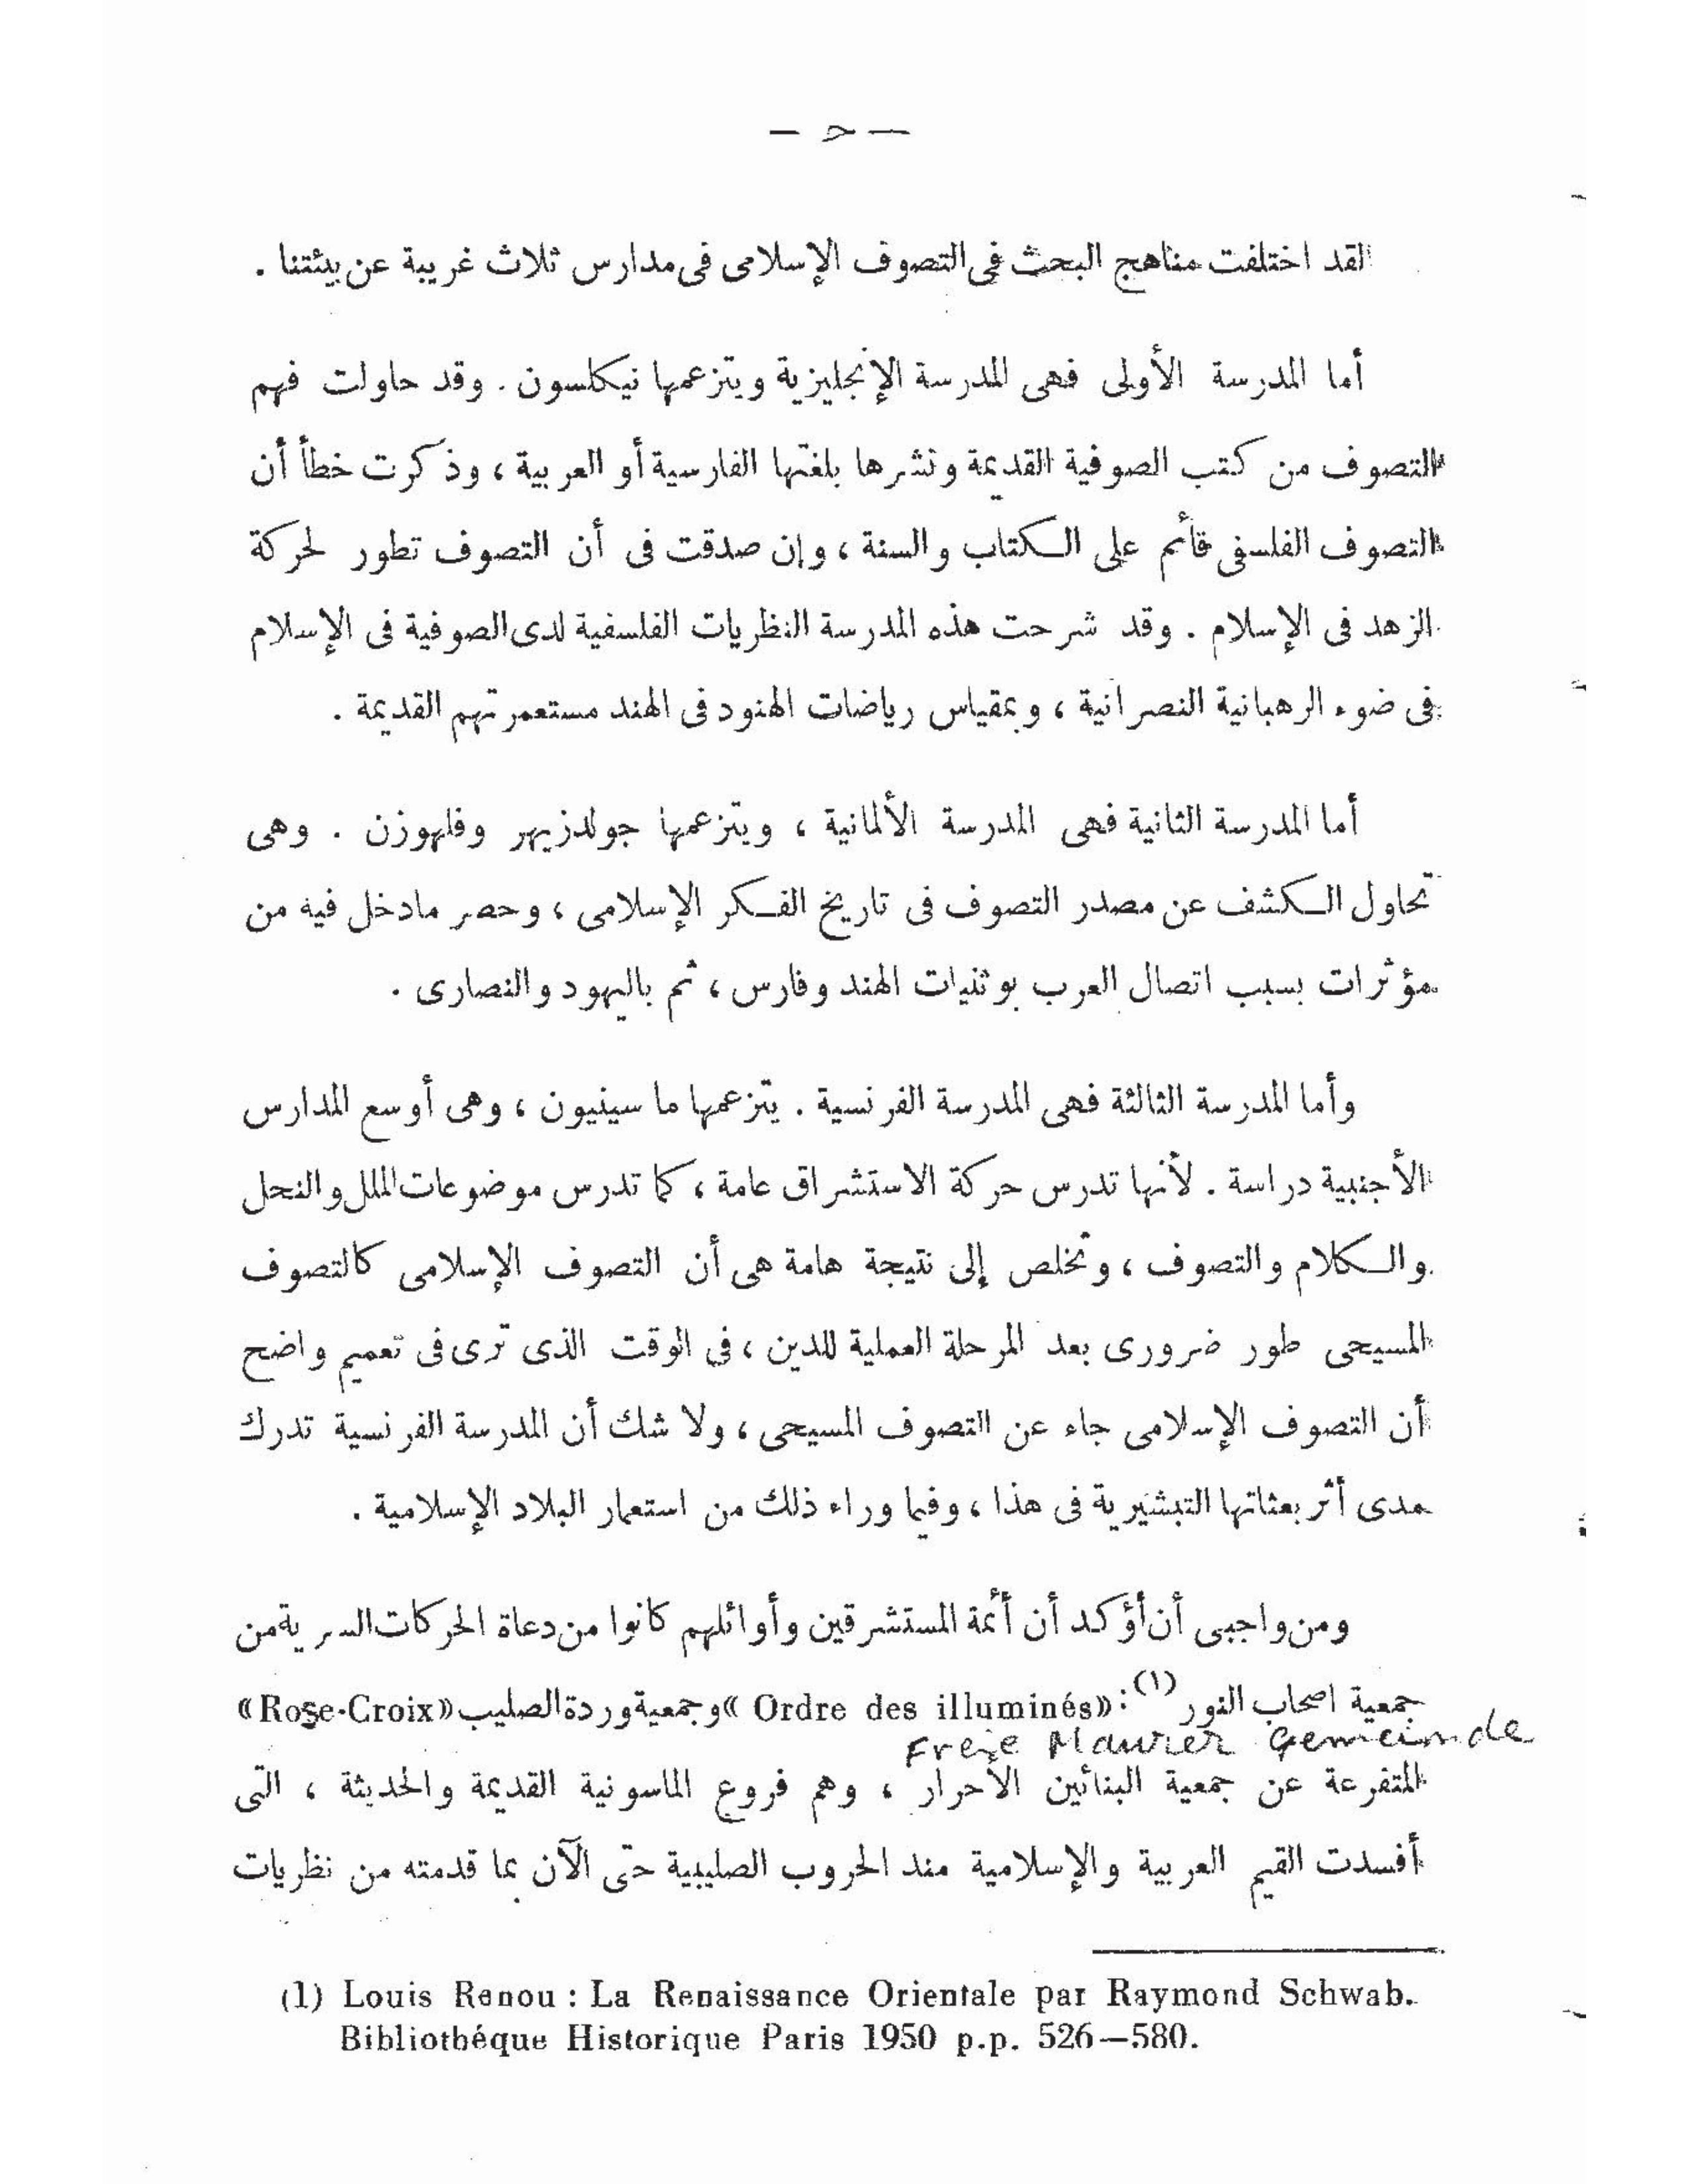 — ح —
لقد اختلفت مناهج البحث فى التصوف الإسلامى فى مدارس ثلاث غريبة عن بيئتنا .
أما المدرسة الأولى فهى المدرسة الإنجليزية ويتزعمها نيكلسون . وقد حاولت فهم
التصوف من كتب الصوفية القديمة ونشرها بلغتها الفارسية أو العربية ، وذكرت خطأ أن
التصوف الفلسفى قائم على الكتاب والسنة ، وإن صدقت فى أن التصوف تطور لحركة
الزهد فى الإسلام . وقد شرحت هذه المدرسة النظريات الفلسفية لدى الصوفية فى الإسلام
فى ضوء الرهبانية النصرانية ، وبمقياس رياضات الهنود فى الهند مستعمرتهم القديمة .
أما المدرسة الثانية فهى المدرسة الألمانية ، ويتزعمها جولدزيهر وفلهوزن . وهى
تحاول الكشف عن مصدر التصوف فى تاريخ الفكر الإسلامى ، وحصر مادخل فيه من
مؤثرات بسبب اتصال العرب بوثنيات الهند وفارس ، ثم باليهود والنصارى .
وأما المدرسة الثالثة فهى المدرسة الفرنسية . يتزعمها ما سينيون ، وهى أوسع المدارس
الأجنبية دراسة . لأنها تدرس حركة الاستشراق عامة ، كما تدرس موضوعات الملل والنحل
والكلام والتصوف ، وتخلص إلى نتيجة هامة هى أن التصوف الإسلامى كالتصوف
المسيحى طور ضرورى بعد المرحلة العملية للدين ، فى الوقت الذى ترى فى تعميم واضح
أن التصوف الإسلامى جاء عن التصوف المسيحى ، ولا شك أن المدرسة الفرنسية تدرك
مدى أثر بعثاتها التبشيرية فى هذا ، وفيما وراء ذلك من استعمار البلاد الإسلامية .
ومن واجبى أن أؤكد أن أئمة المستشرقين وأوائلهم كانوا من دعاة الحركات السرية من
جمعية اصحاب النور (١) : «Ordre des illuminés» وجمعية وردة الصليب «Rose-Croix»
Freie Maurer Gemeinde
المتفرعة عن جمعية البنائين الأحرار ، وهم فروع الماسونية القديمة والحديثة ، التى
أفسدت القيم العربية والإسلامية منذ الحروب الصليبية حتى الآن بما قدمته من نظريات
(1) Louis Renou : La Renaissance Orientale par Raymond Schwab.
Bibliothéque Historique Paris 1950 p.p. 526—580.